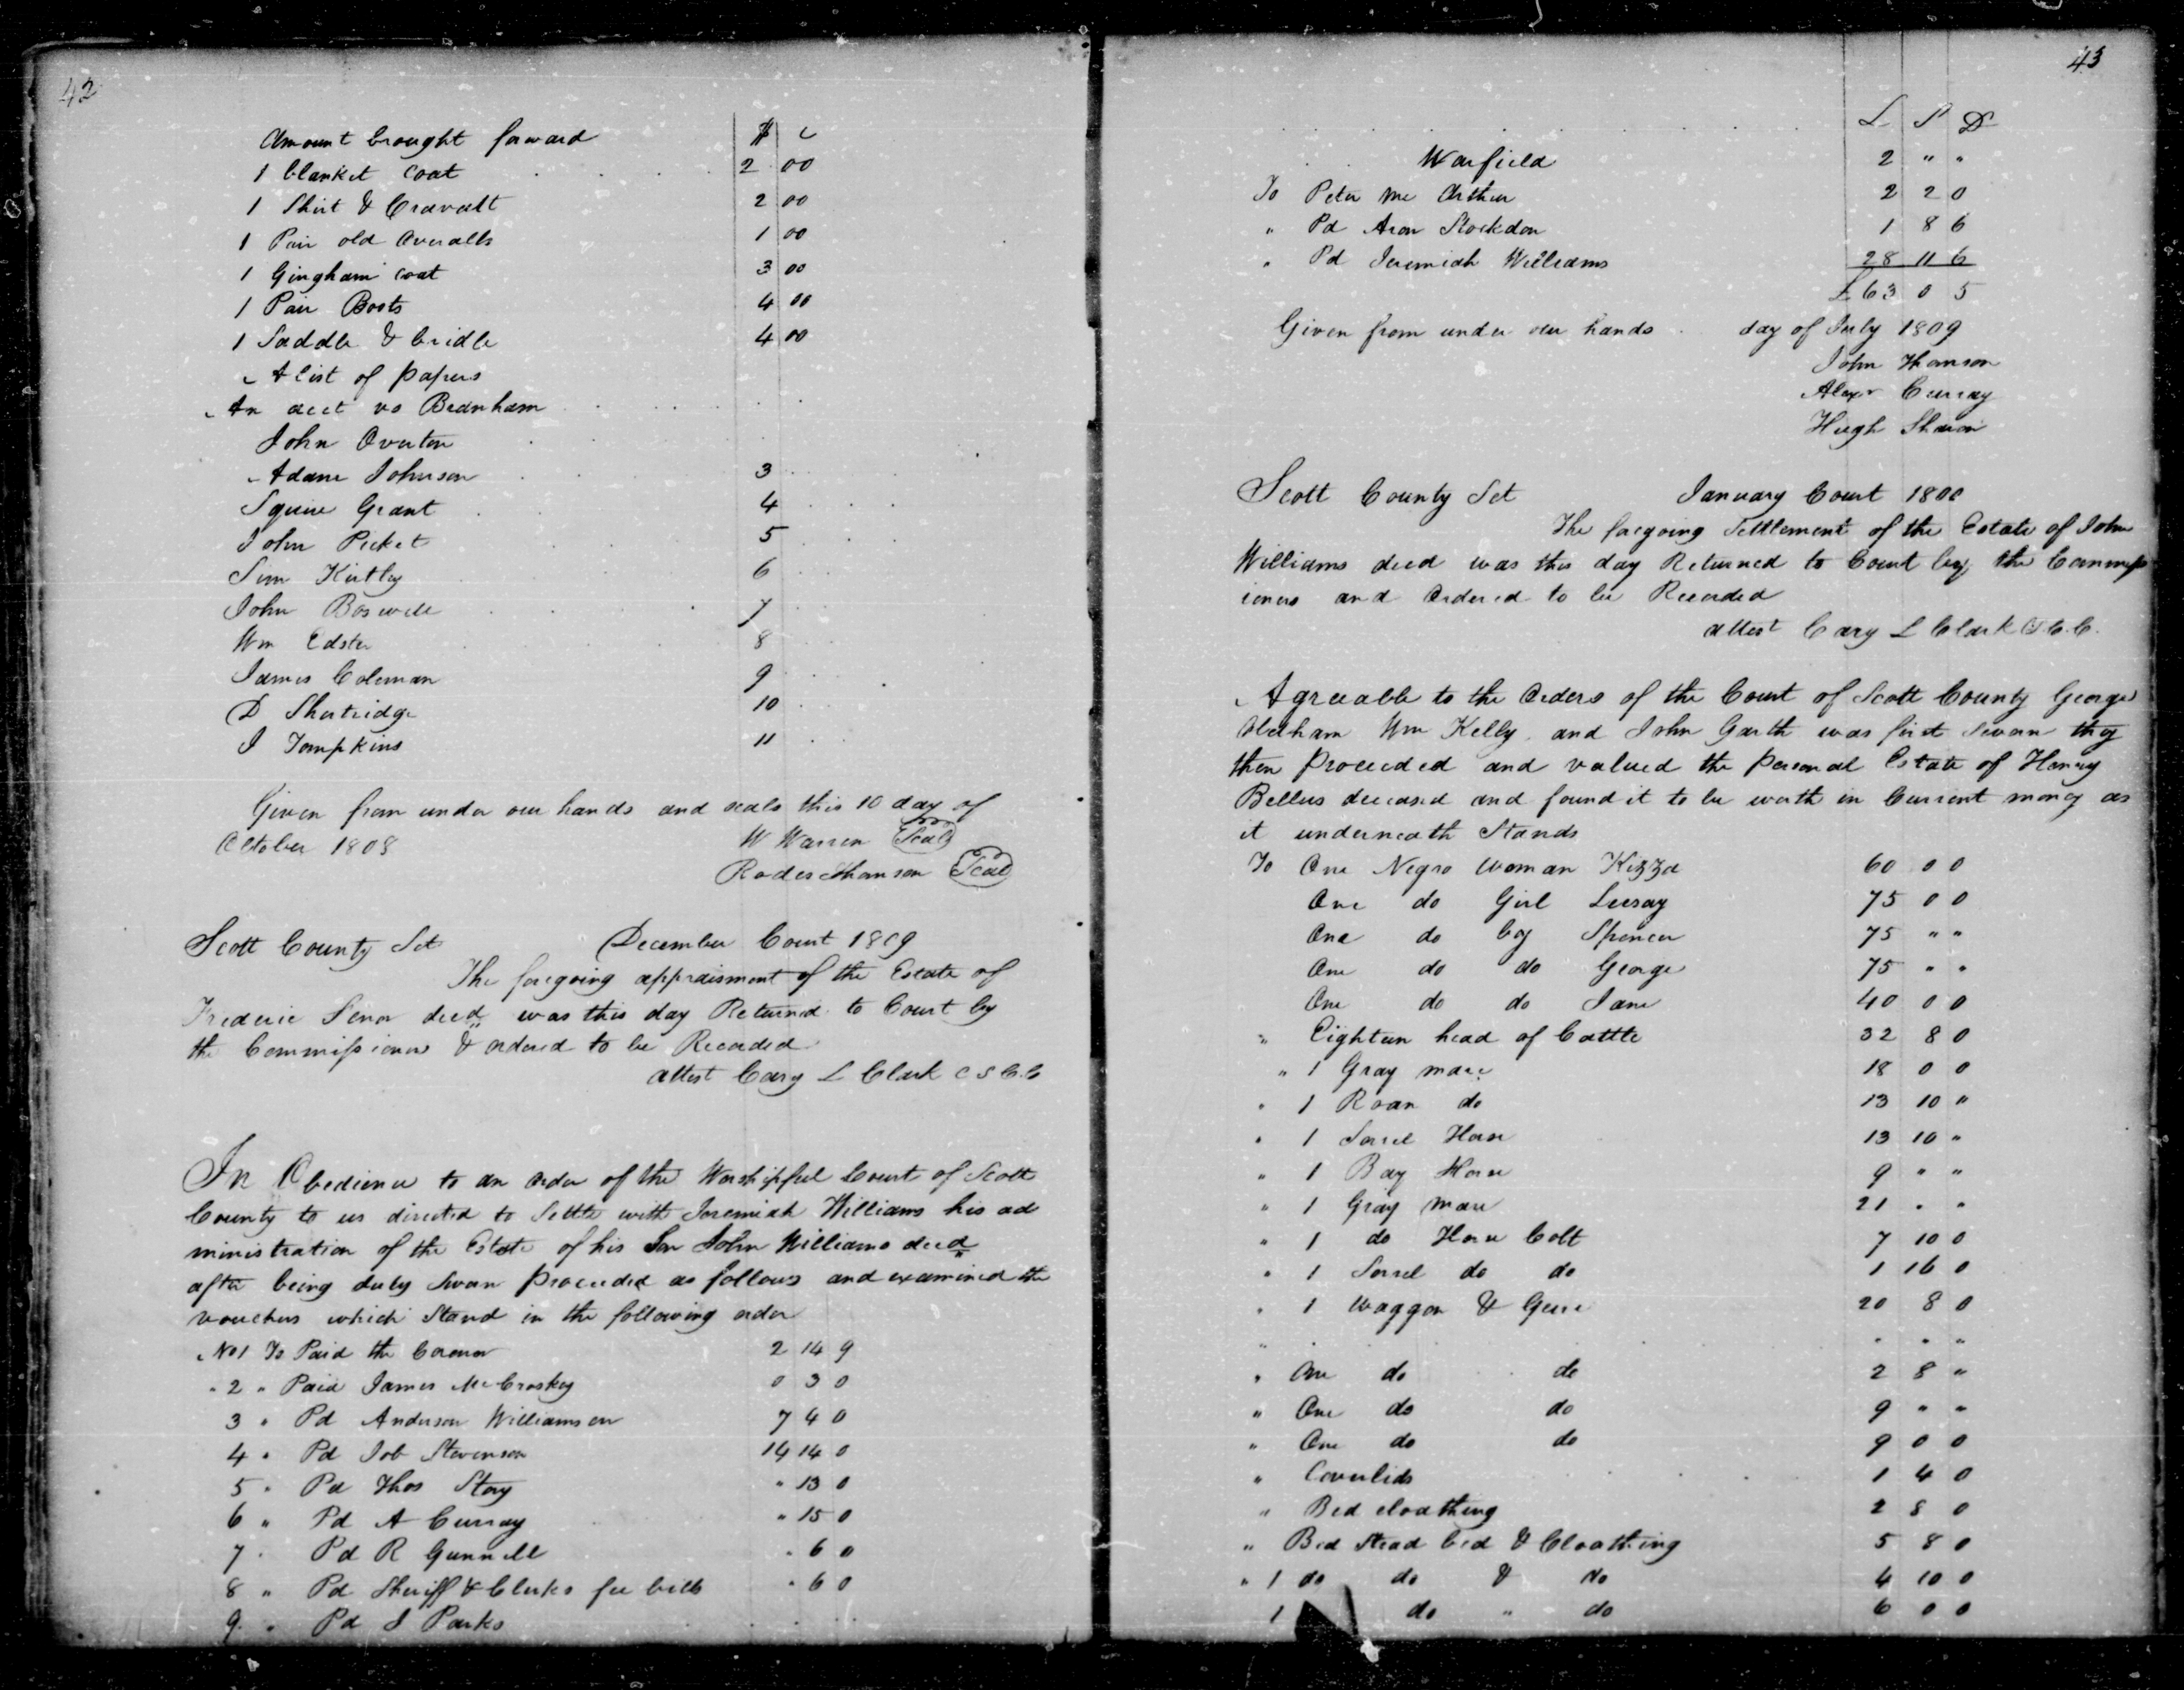 42
Amount brought forward $ c
1 blanket coat 2 00
1 Shirt & Cravatt 2 00
1 Pair old Overalls 1 00
1 Gingham coat 3 00
1 Pair Boots 4 00
1 Saddle & bridle 4 00
A list of papers
An acct vs Branham
John Overton
Adam Johnson 3
Squire Grant 4
John Picket 5
Sim Kirtley 6
John Boswell 7
Wm 8
James Coleman 9
D Shortridge 10
J Tompkins 11
Given from under our hands and seals this 10 day of
October 1808 W Warren Seal
Rodes Thomson Seal
Scott County Sct December Court 1809
The foregoing appraisment of the Estate of
Frederic Senor decd was this day Returned to Court by
the Commissioners & ordered to be Recorded
attest Cary L Clark C S C.C
In Obedience to an order of the Worshipful Court of Scott
County to us directed to Settle with Jeremiah Williams his ad
ministration of the Estate of his Son John Williams decd
after being duly Swon proceeded as follows and examined the
vouchers which Stand in the following order
No 1 To Paid the Coroner 2 14 9
" 2 " Paid James McCroskey 0 3 0
3 " Pd Anderson Williamson 7 4 0
4 " Pd Job Stevenson 14 14 0
5 " Pd Thos Story " 13 0
6 " Pd A Curray " 15 0
7 " Pd R Gunnell " 6 0
8 " Pd Sheriff & Clerks fee bills " 6 0
9 " Pd J Parks
43
L S D
Warfield 2 " "
To Peter Mc Arthur 2 2 0
" Pd Aron Stockdon 1 8 6
" Pd Jeremiah Williams 28 11 6
£ 63 0 5
Given from under our hands day of July 1809
John Thomson
Alexr Curray
Hugh Shanon
Scott County Sct January Court 1800
The foregoing Settlement of the Estate of John
Williams decd was this day Returned to Court by the Commiss
ioners and Ordered to be Recorded
attest Cary L Clark C S C.C.
Agreeable to the Orders of the Court of Scott County George
Oldham Wm Kelly and John Garth was first Sworn they
then proceeded and valued the personal Estate of Henry
Bellus deceased and found it to be worth in Current money as
it underneath Stands
To One Negro woman Kizza 60 0 0
One do Girl Lucy 75 0 0
One do boy Spencer 75 " "
One do do George 75 " "
One do do Jane 40 0 0
" Eighteen head of Cattle 32 8 0
" 1 Gray mare 18 0 0
" 1 Roan do 13 10 "
" 1 Sorrel Horse 13 10 "
" 1 Bay Horse 9 " "
" 1 Gray Mare 21 " "
" 1 do Horse Colt 7 10 0
" 1 Sorrel do do 1 16 0
" 1 Waggon & Geere 20 8 0
" One do do 2 8 "
" One do do 9 " "
" One do do 9 0 0
" Coverlids 1 4 0
" Bed cloathing 2 8 0
" Bed Stead bed & Cloathing 5 8 0
" 1 do do & do 4 10 0
1 do " do 6 0 0